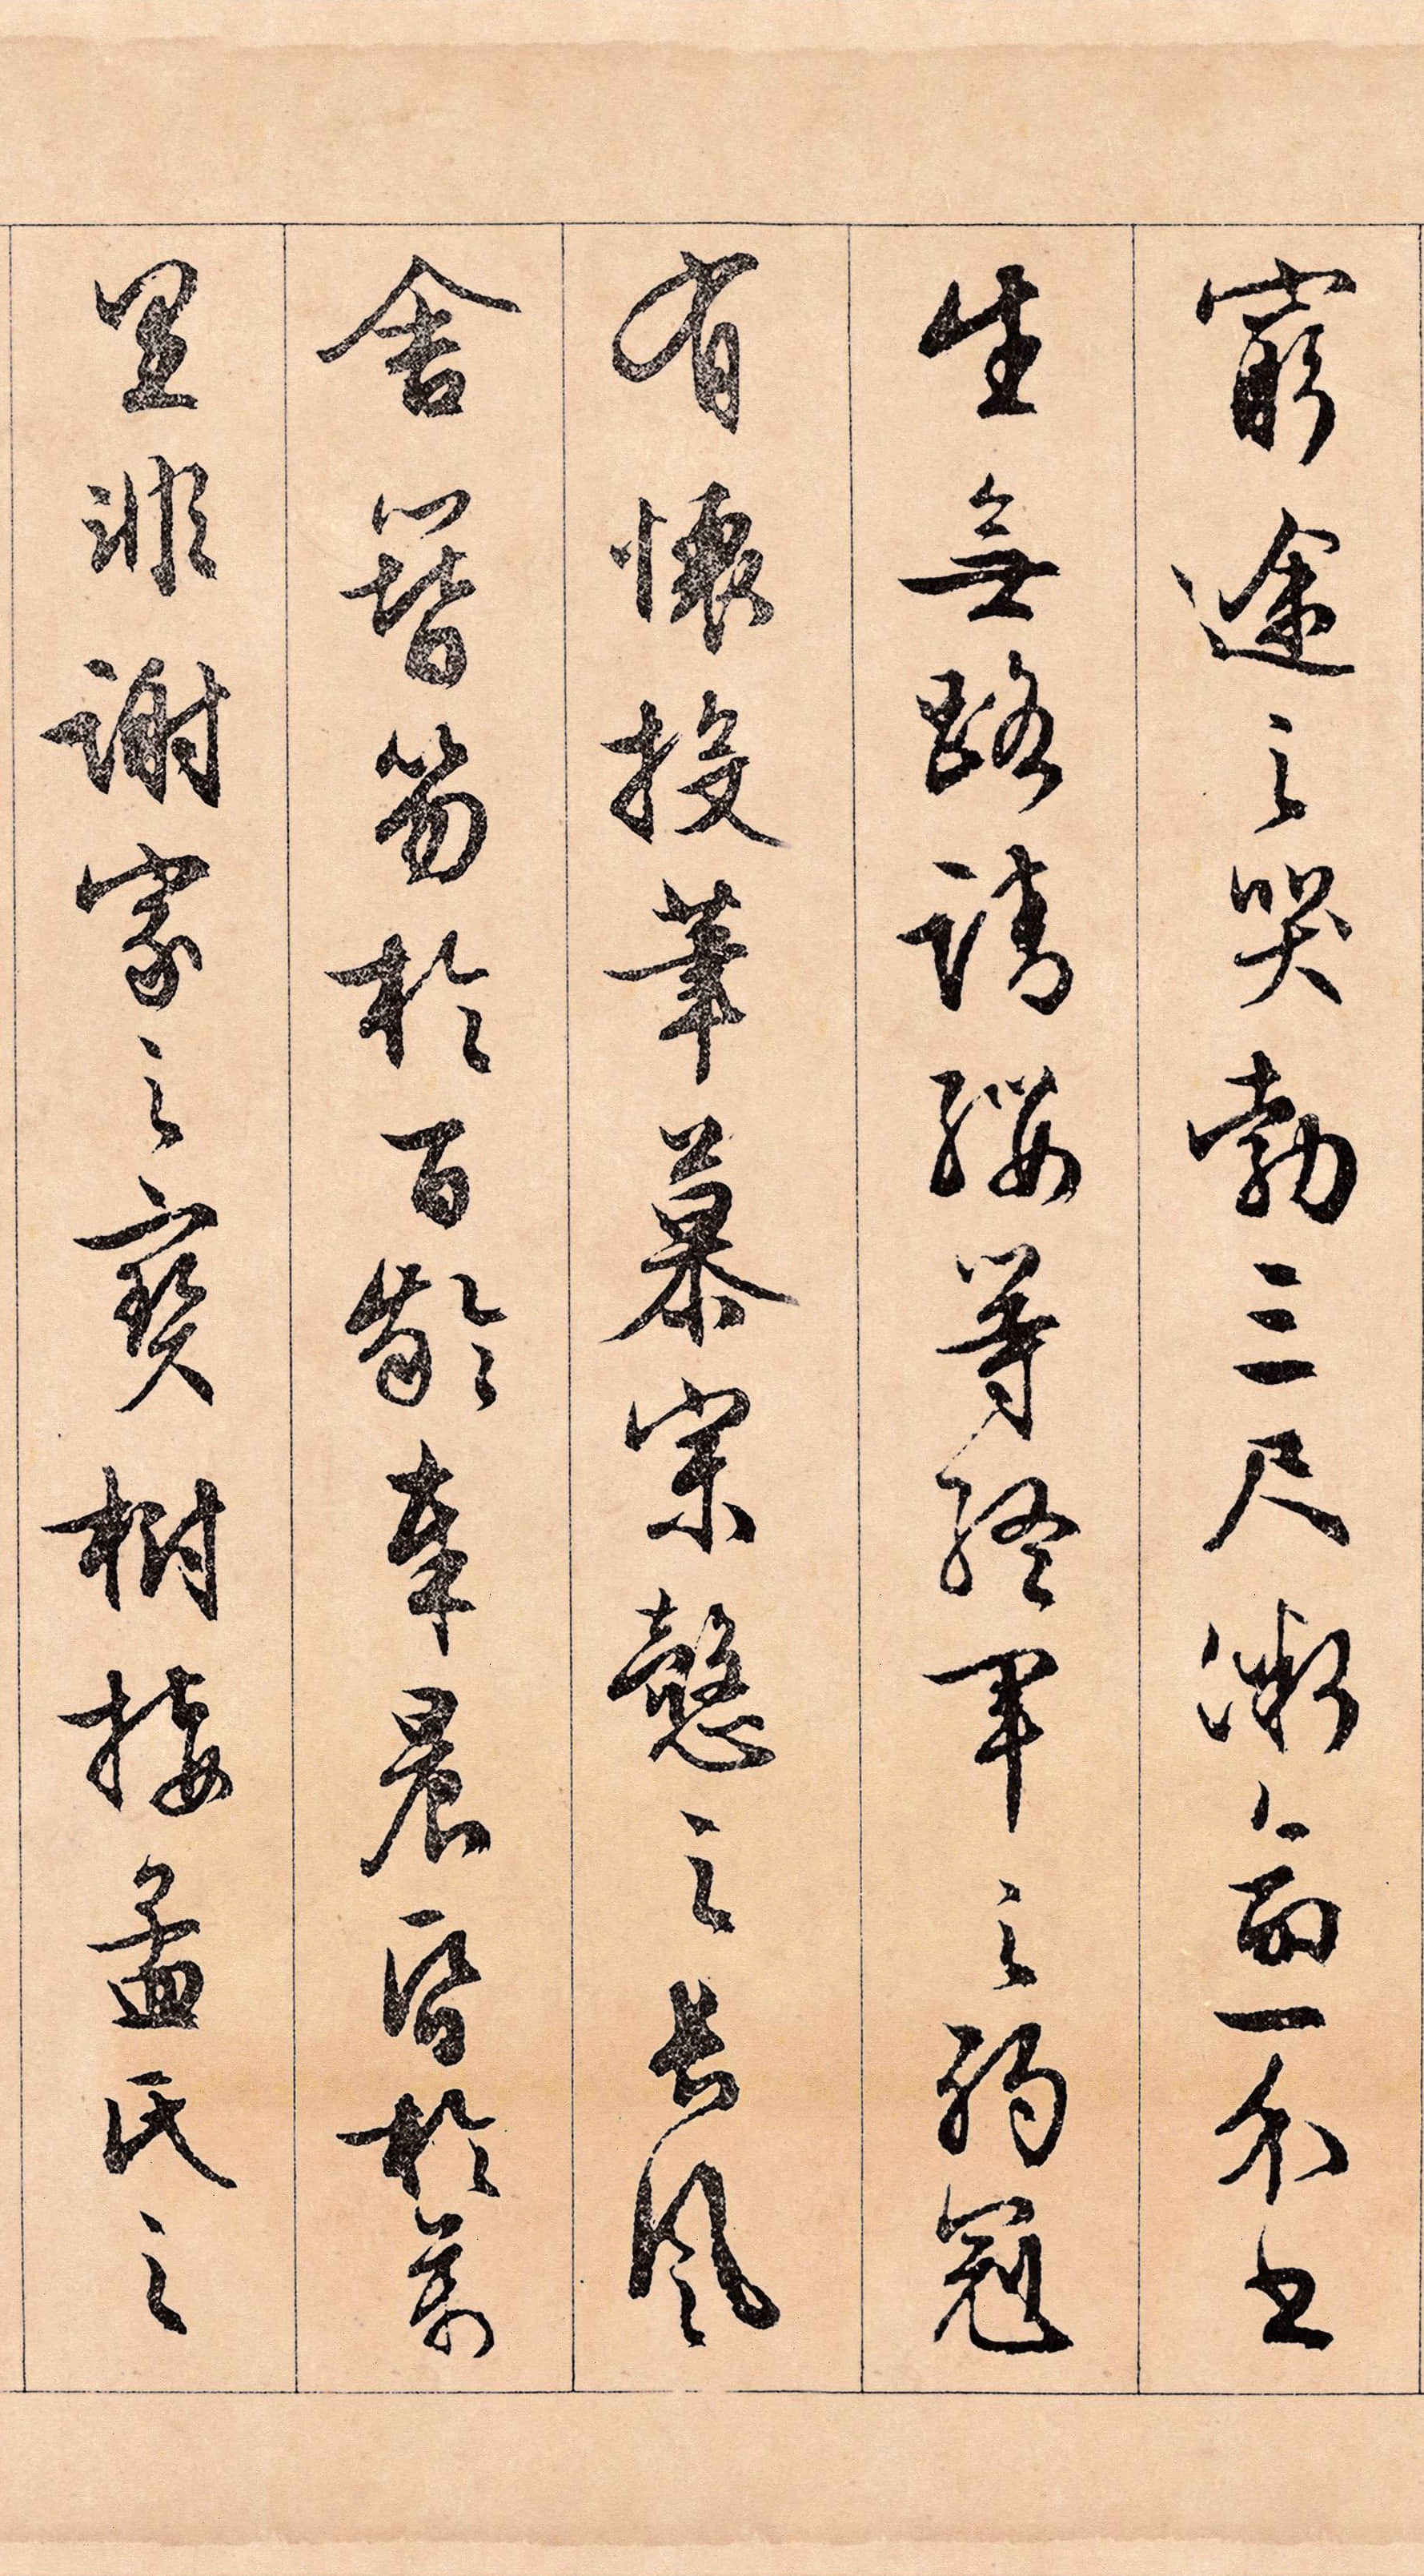 窮途之哭勃三尺微命一介書
生無路請纓等終軍之弱冠
有懷投筆慕宗慤之長風
舍簪笏於百齡奉晨昏於萬
里非謝家之寶樹接孟氏之